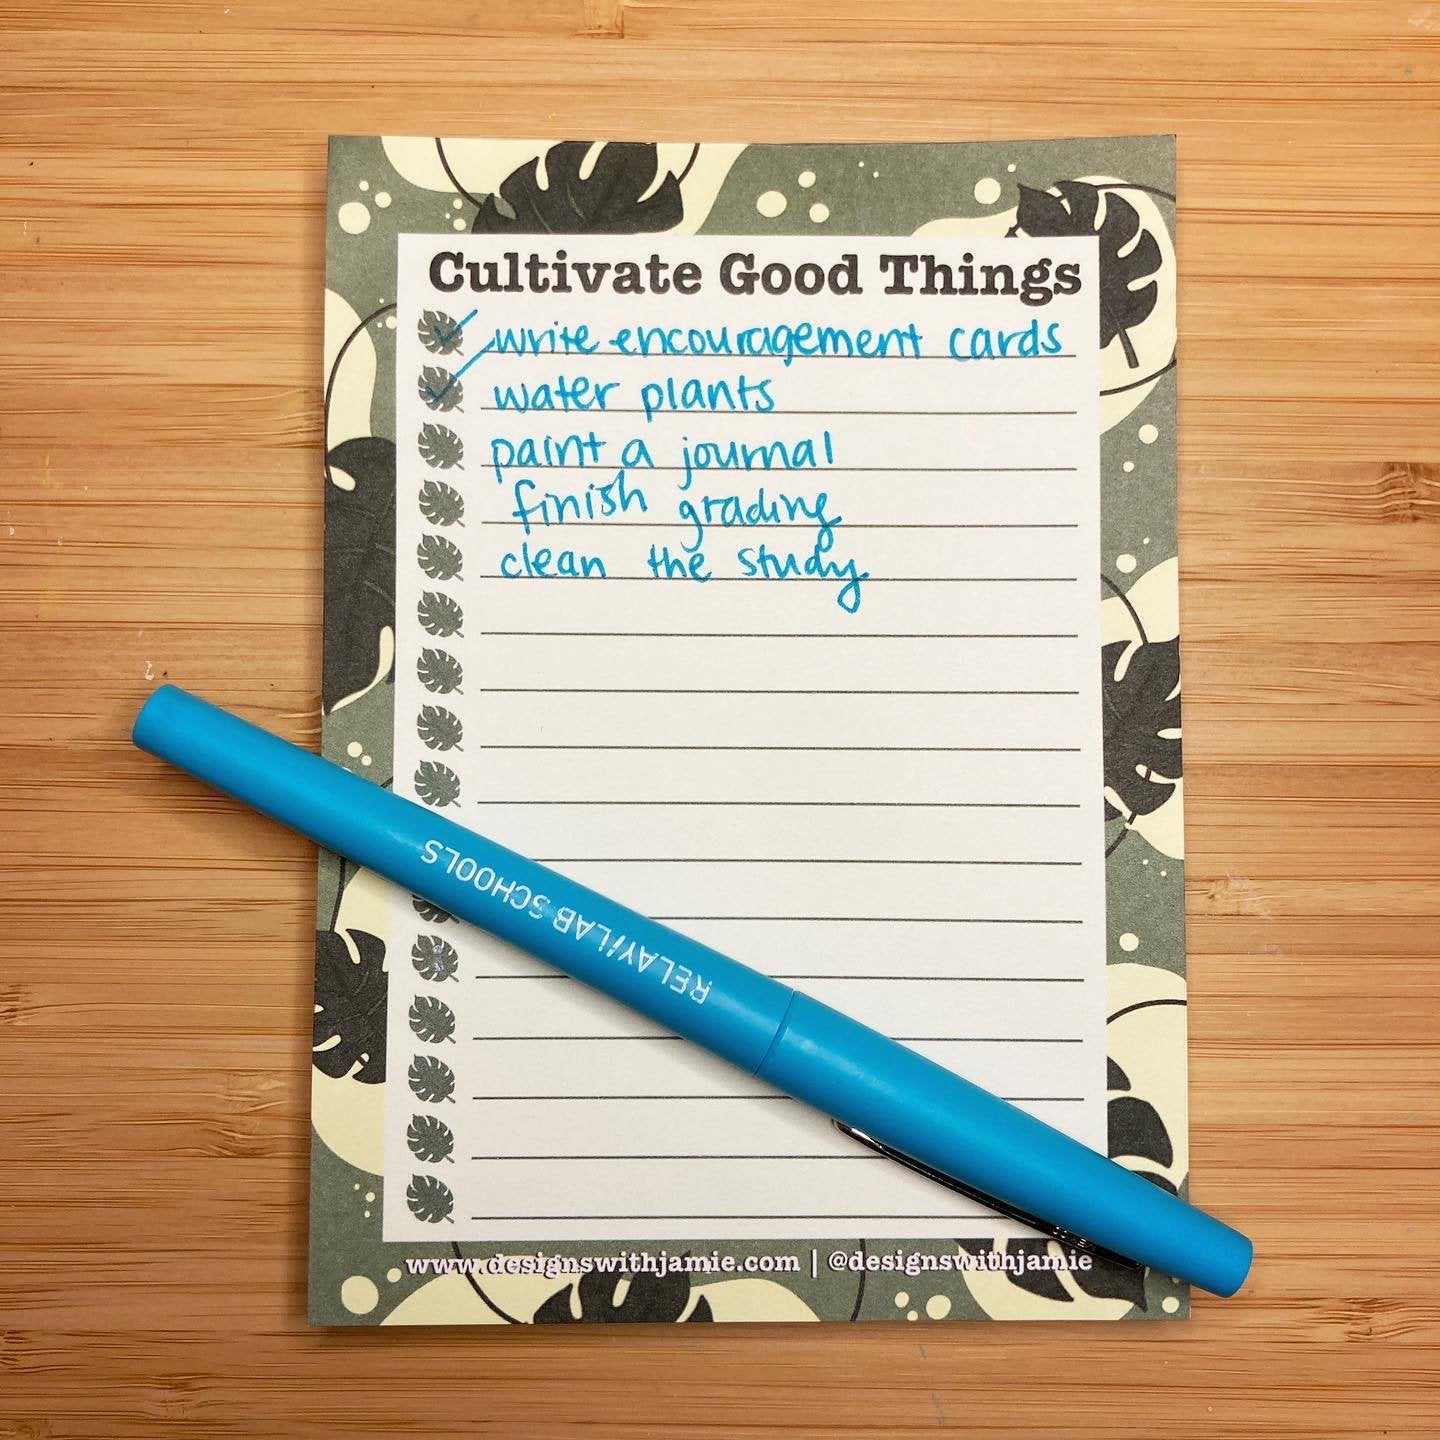 Cultivate Good Things
write encouragement cards
water plants
paint a journal
finish grading
clean the study
RELAY//LAB SCHOOLS
www.designswithjamie.com | @designswithjamie